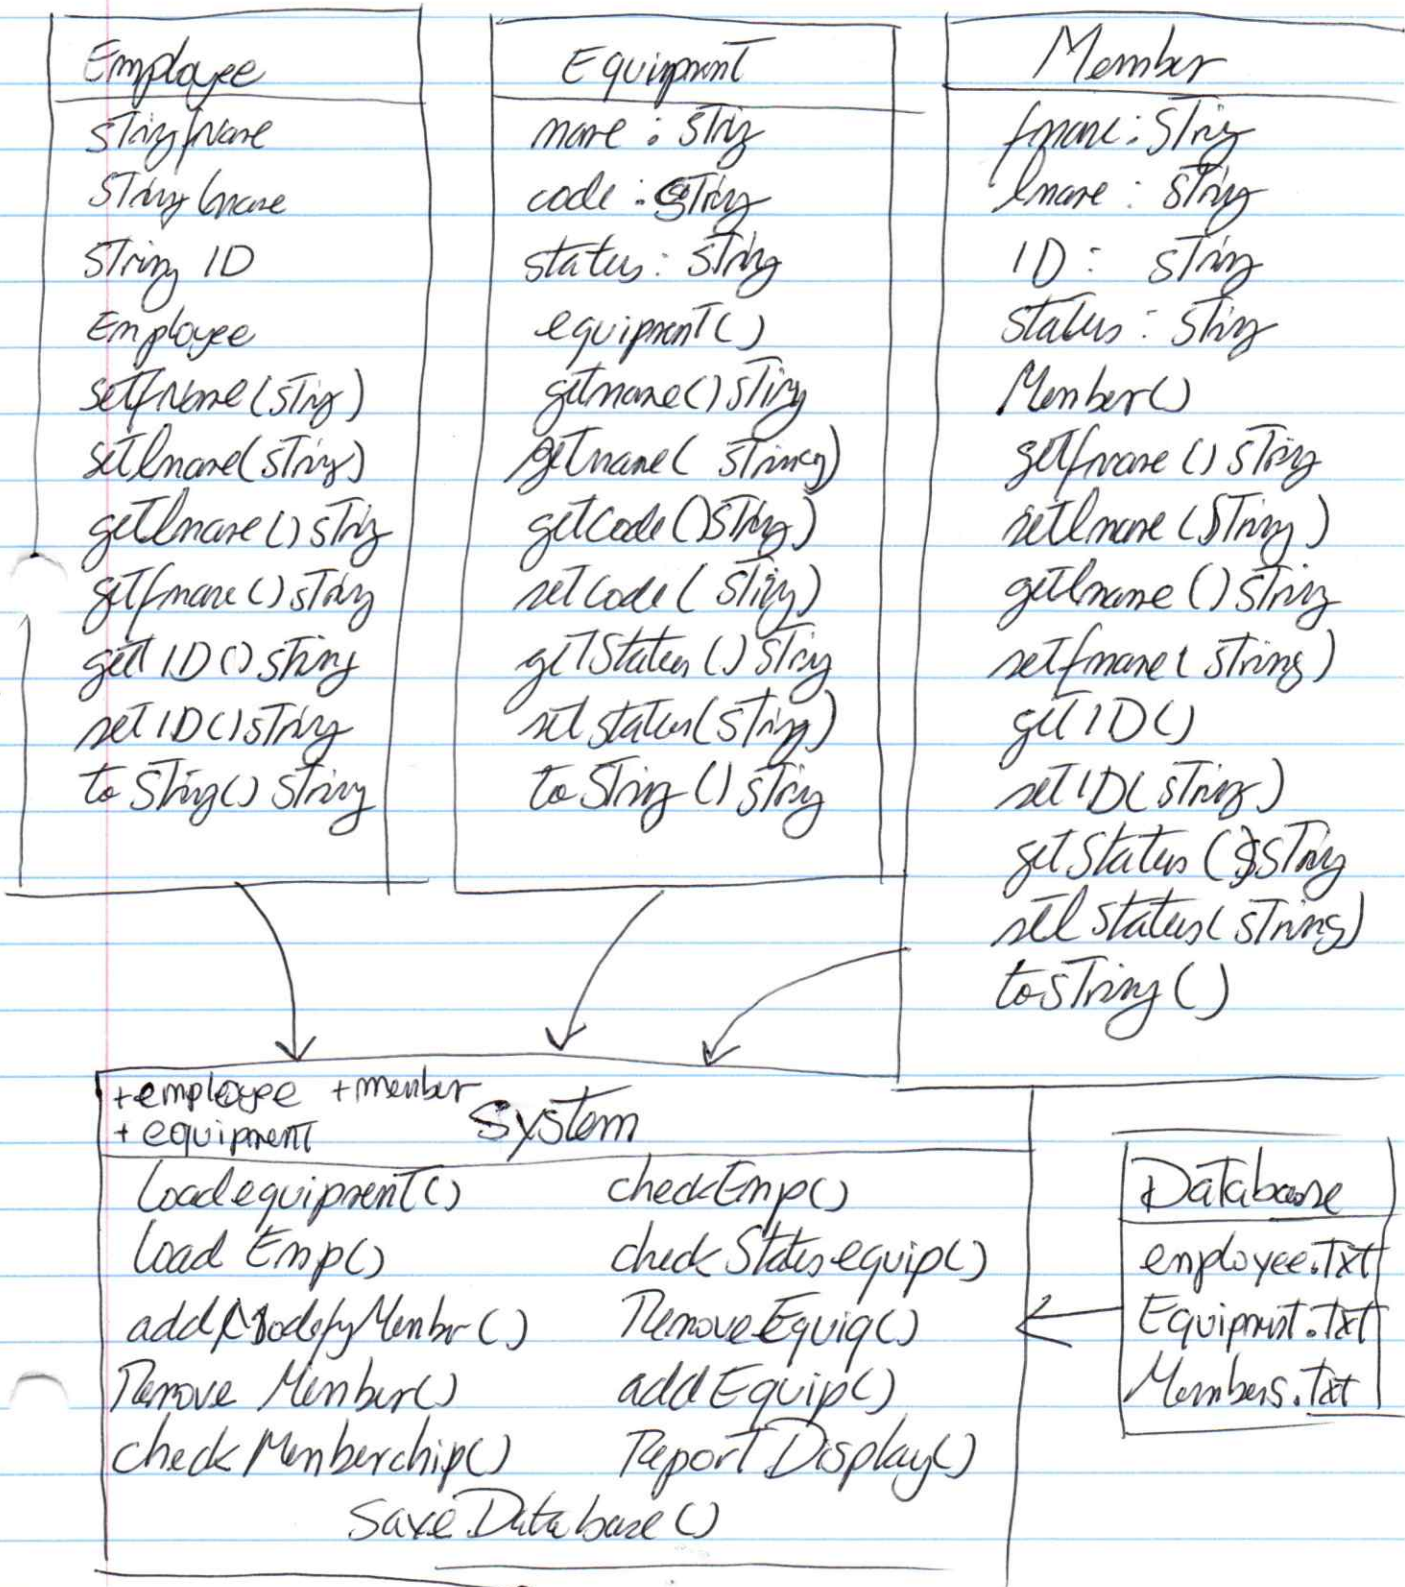 Employee
String fName
String lname
String ID
Employee
setfName(String)
setlname(String)
getlname() String
getfname() String
get ID() String
set ID() String
to String() String
Equipment
name : String
code : String
status : String
equipment()
getname() String
getname( String)
getcode() String)
setcode( String)
getStatus() String
setstatus(String)
to String() String
Member
fname : String
lname : String
ID : String
Status : String
Member()
getfname() String
setlname(String)
getlname() String
setfname( String)
getID()
setID( String)
getStatus() String
setstatus( String)
toString()
+employee +member
+ equipment
System
Loadequipment()
Load Emp()
add/ModefyMember()
Remove Member()
check Memberchip()
checkEmp()
check Status equip()
RemoveEquiq()
addEquip()
Report Display()
Save Database()
Database
employee.Txt
Equipment.Txt
Members.Txt